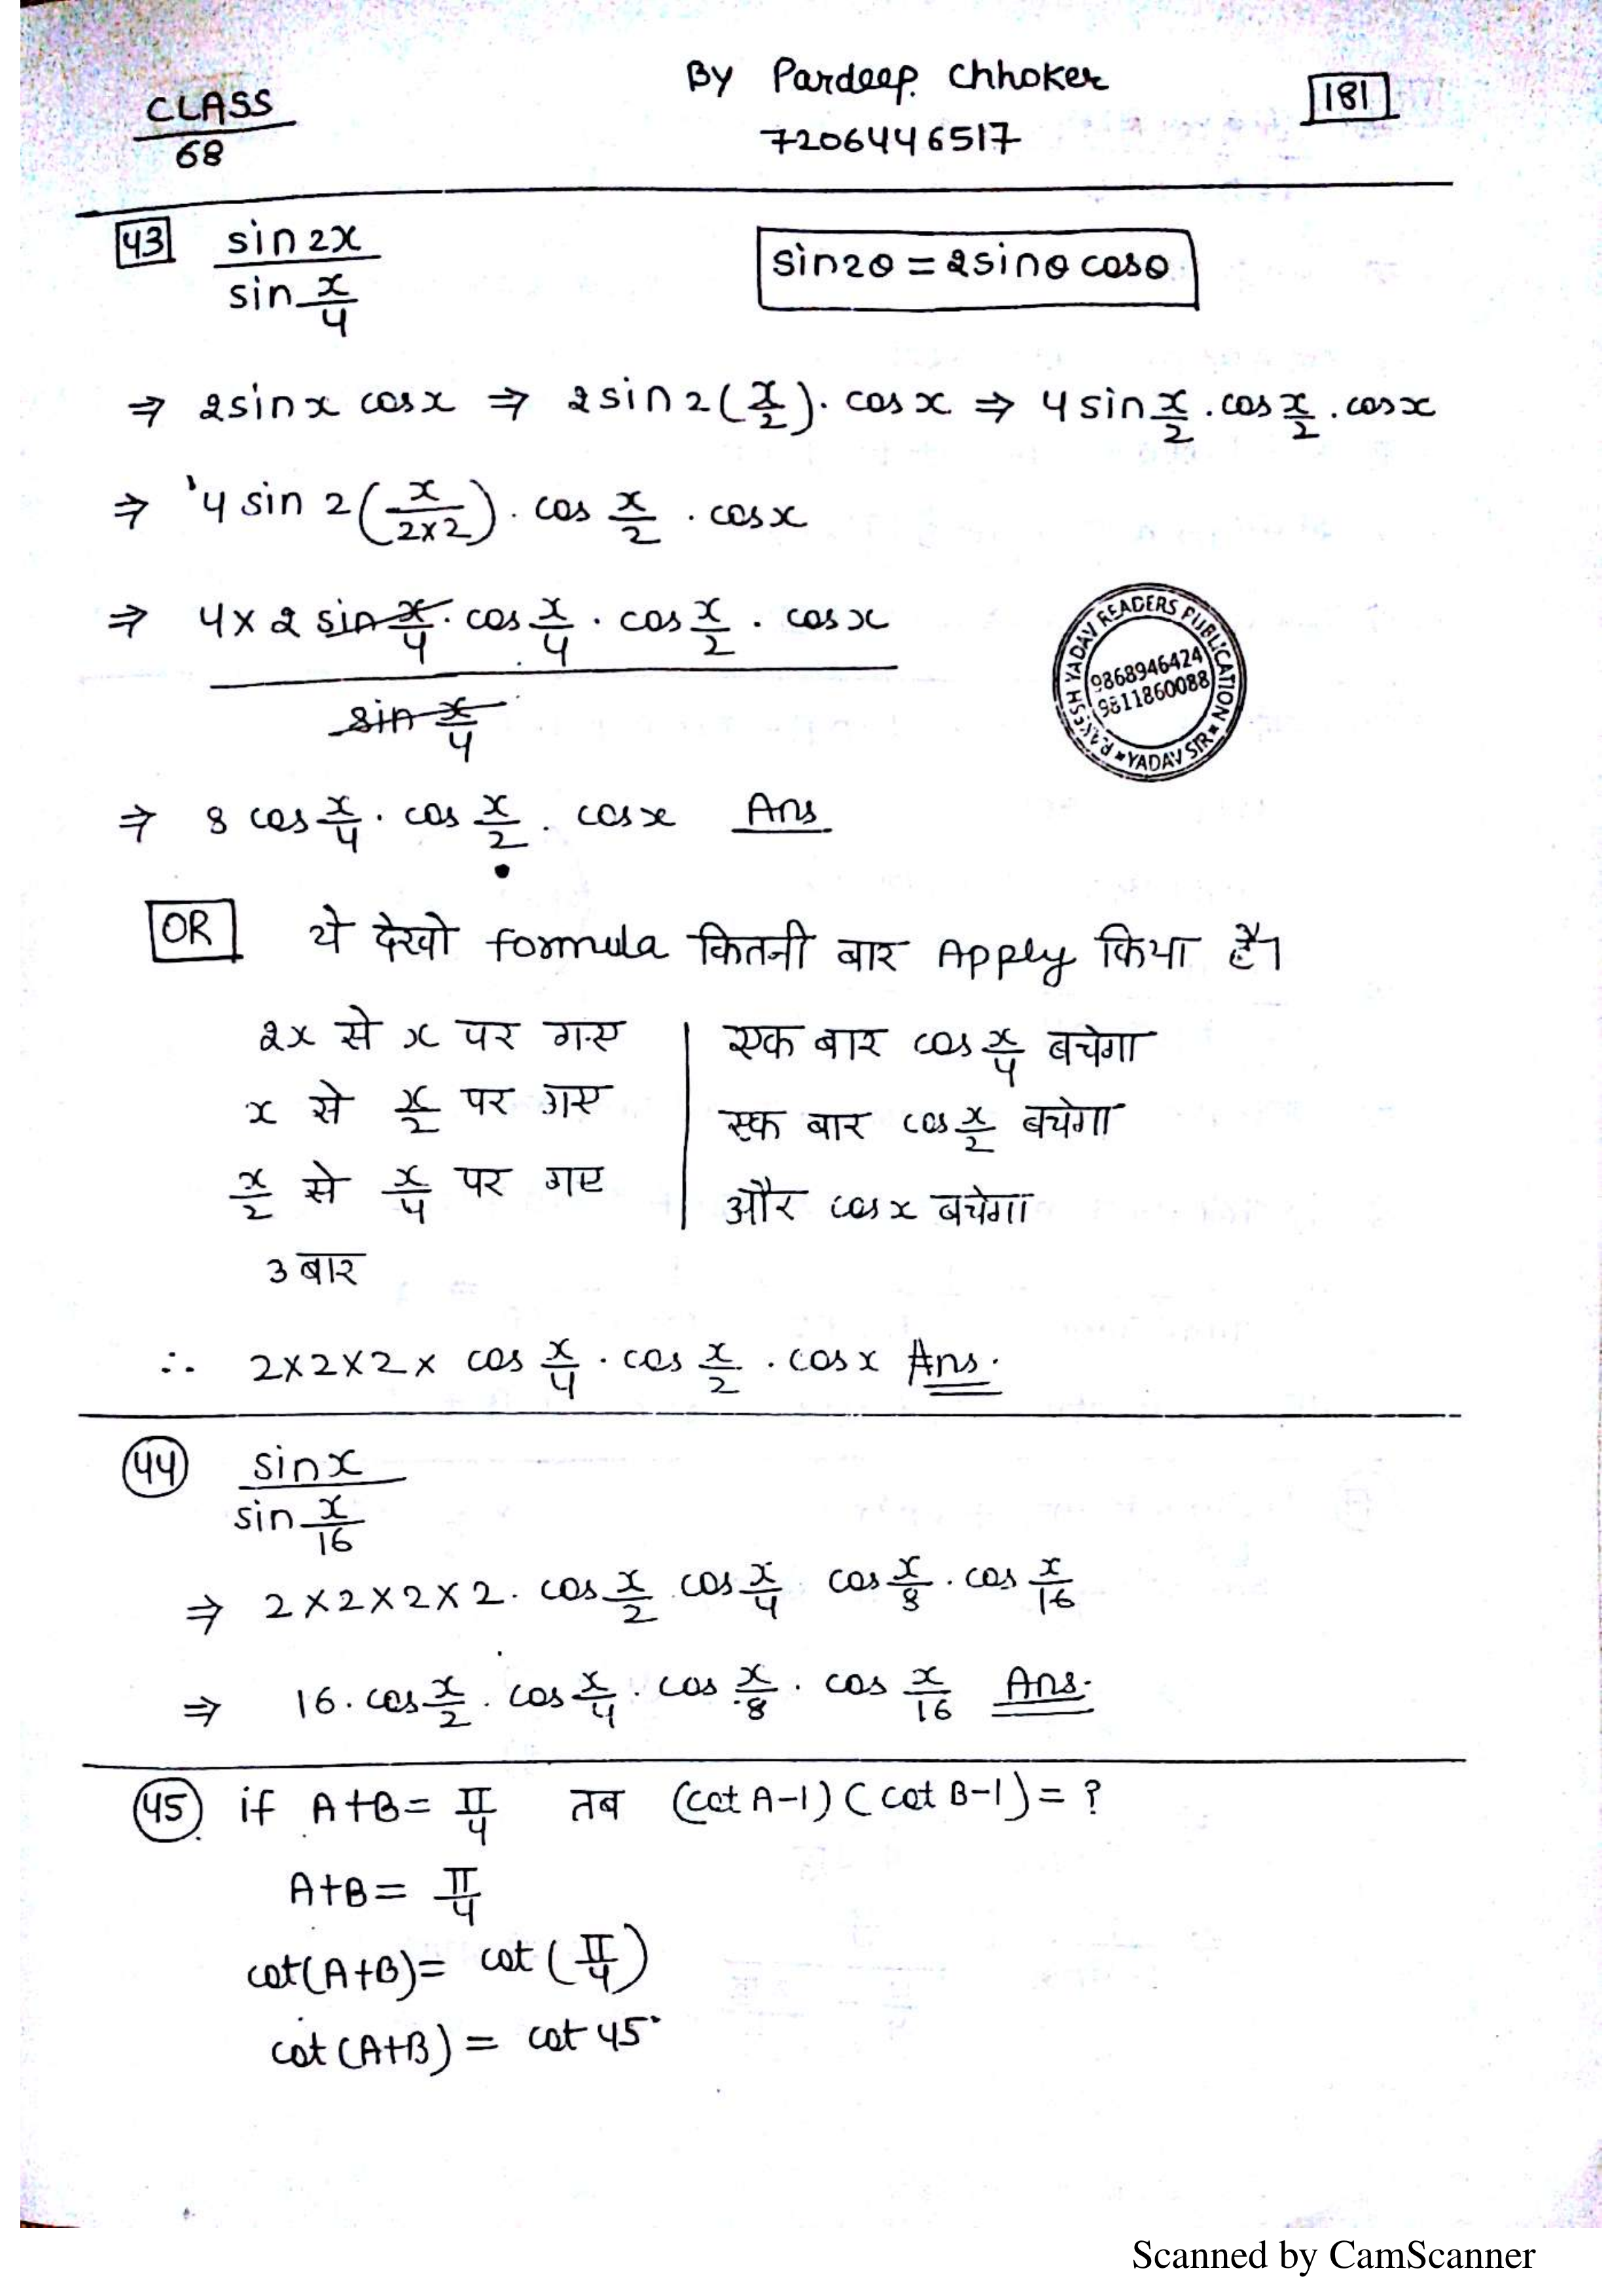 By Pardeep. Chhoker
181
CLASS
68
7206446517
43 sin2x / sin x/4
sin2θ = 2sinθ cosθ
⇒ 2sinx cosx ⇒ 2sin2(x/2). cosx ⇒ 4sin x/2 . cos x/2 . cosx
⇒ 4 sin 2 (x/2×2) . cos x/2 . cosx
⇒ 4×2 sin x/4 . cos x/4 . cos x/2 . cosx
sin x/4
RAKESH YADAV READERS PUBLICATION
9868946424
9811860088
YADAV SIR
⇒ 8 cos x/4 . cos x/2 . cosx Ans
OR ये देखो formula कितनी बार Apply किया है।
2x से x पर गए | एक बार cos x/4 बचेगा
x से x/2 पर गए | एक बार cos x/2 बचेगा
x/2 से x/4 पर गए | और cosx बचेगा
3 बार
∴ 2×2×2× cos x/4 . cos x/2 . cosx Ans.
44 sinx / sin x/16
⇒ 2×2×2×2. cos x/2 cos x/4 . cos x/8 . cos x/16
⇒ 16. cos x/2 . cos x/4 . cos x/8 . cos x/16 Ans.
45 if A+B = π/4 तब (cot A-1) (cot B-1) = ?
A+B = π/4
cot(A+B) = cot (π/4)
cot (A+B) = cot 45°
Scanned by CamScanner